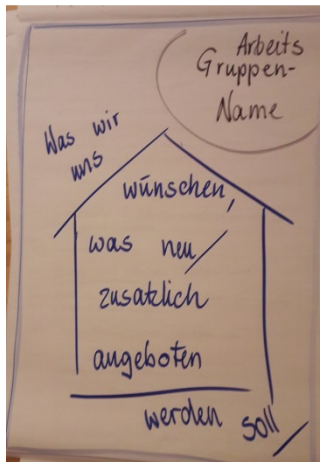 Arbeits
Gruppen-
Name
Was wir
uns
wünschen,
was neu /
zusätzlich
angeboten
werden soll